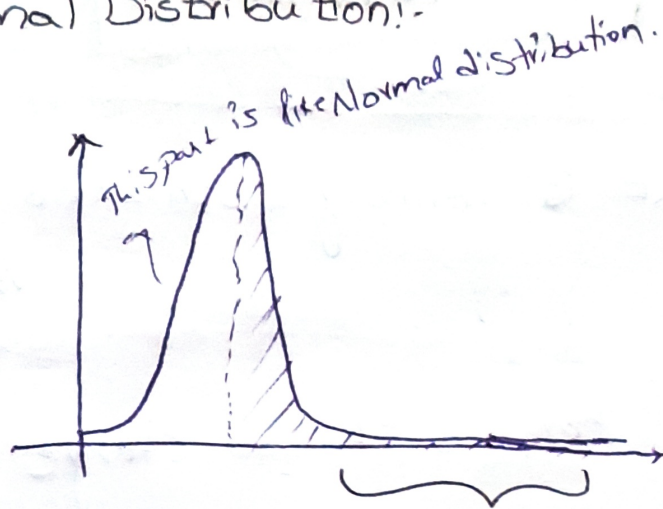 nal Distribution:-
This part is like Normal distribution.